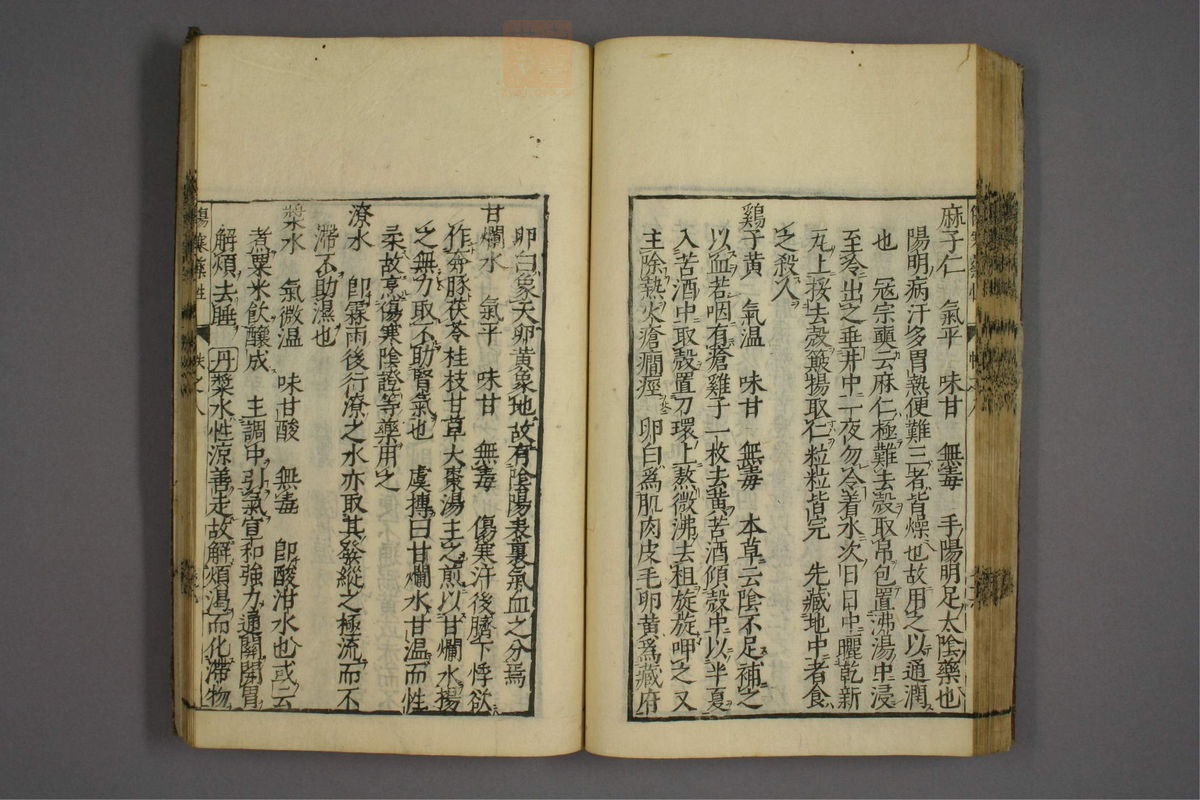 麻子仁　氣平　味甘　無毒　手陽明足太陰藥也
陽明病汗多胃熱便難三者皆燥也故用之以通潤
也　冦宗奭云麻仁極難去殼取帛包置沸湯中浸
至冷出之垂井中一夜勿令着水次日日中曬乾新
瓦上挼去殼簸揚取仁粒粒皆完　先藏地中者食
之殺人
鷄子黃　氣温　味甘　無毒　本草云陰不足補之
以血若咽有瘡雞子一枚去黃苦酒傾殼中以半夏
入苦酒中取殼置刀環上熬微沸去柤旋旋呷之又
主除熱火瘡癎痙　卵白爲肌肉皮毛卵黃爲藏府
卵白象天卵黃象地故有陰陽表裏氣血之分焉
甘爛水　氣平　味甘　無毒　傷寒汗後臍下悸欲
作奔豚茯苓桂枝甘草大棗湯主之煎以甘爛水揚
之無力取不助腎氣也　虞摶曰甘爛水甘温而性
柔故烹傷寒陰證等藥用之
潦水　卽霖雨後行潦之水亦取其發縱之極流而不
滯不助濕也
漿水　氣微温　味甘酸　無毒　卽酸泔水也或云
煮粟米飮釀成　主調中引氣宣和強力通關開胃
解煩去睡　丹漿水性涼善走故解煩渴而化滯物
傷寒藥性　帙之八